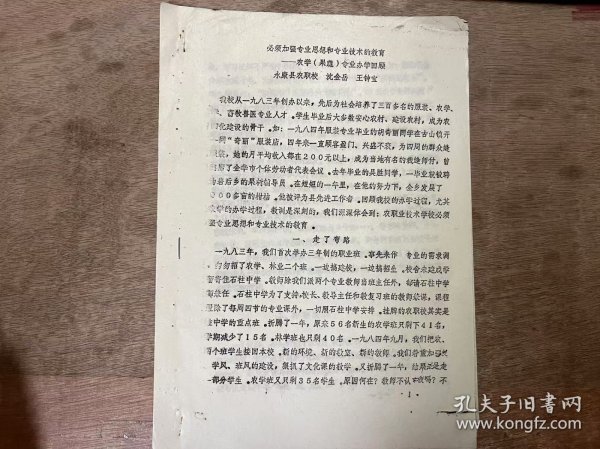 必须加强专业思想和专业技术的教育
——农学（果蔬）专业办学回顾
永康县农职校 沈金岳 王钟宝
我校从一九八三年创办以来，先后为社会培养了三百多名的服装、农学、
、畜牧兽医专业人才。学生毕业后大多数安心农村、建设农村，成为农
化建设的骨干。如：一九八四年服装专业毕业的胡青丽同学在古山镇开
一间“奇丽”服装店，四年来一直顾客盈门、兴盛不衰，为四周的群众缝
服装，她的月平均收入都在200元以上，成为当地有名的裁缝师付，曾
席了金华市个体劳动者代表会议。去年毕业的吴胜同学，一毕业就被聘
岩后乡的果树辅导员。在短短的一年里，在他的努力下，全乡发展了
00多亩的柑桔。他被评为县先进工作者。回顾我校的办学过程，尤其
农学的办学过程，教训是深刻的，我们深深体会到：农职业技术学校必须
强专业思想和专业技术的教育。
一、走了弯路
一九八三年，我们首次举办三年制的职业班。事先未作 专业的需求调
勿勿招了农学、林业二个班。一边搞建校，一边搞招生。校舍未建成学
寄住石柱中学。教师除我们派两个专业教师当班主任外，都请石柱中学教
兼任。石柱中学为了支持，校长、教导主任和教复习班的教师兼课，课程
除了每周四节的专业课外，一切照石柱中学安排。挂牌的农职校其实是
中学的重点班。折腾了一年，原来56名新生的农学班只剩下41名，
期减少了15名。林学班也只剩40名。一九八四年九月，我们把农、
两个班学生接回本校。新的环境、新的教室、新的教师。我们着重加
学风、班风的建设，狠抓了文化课的教学。又折腾了一年，结果
一部分学生。农学班又只剩35名学生。原因何在？教师不认 吗？不
1
孔夫子旧书网
kongfz.com